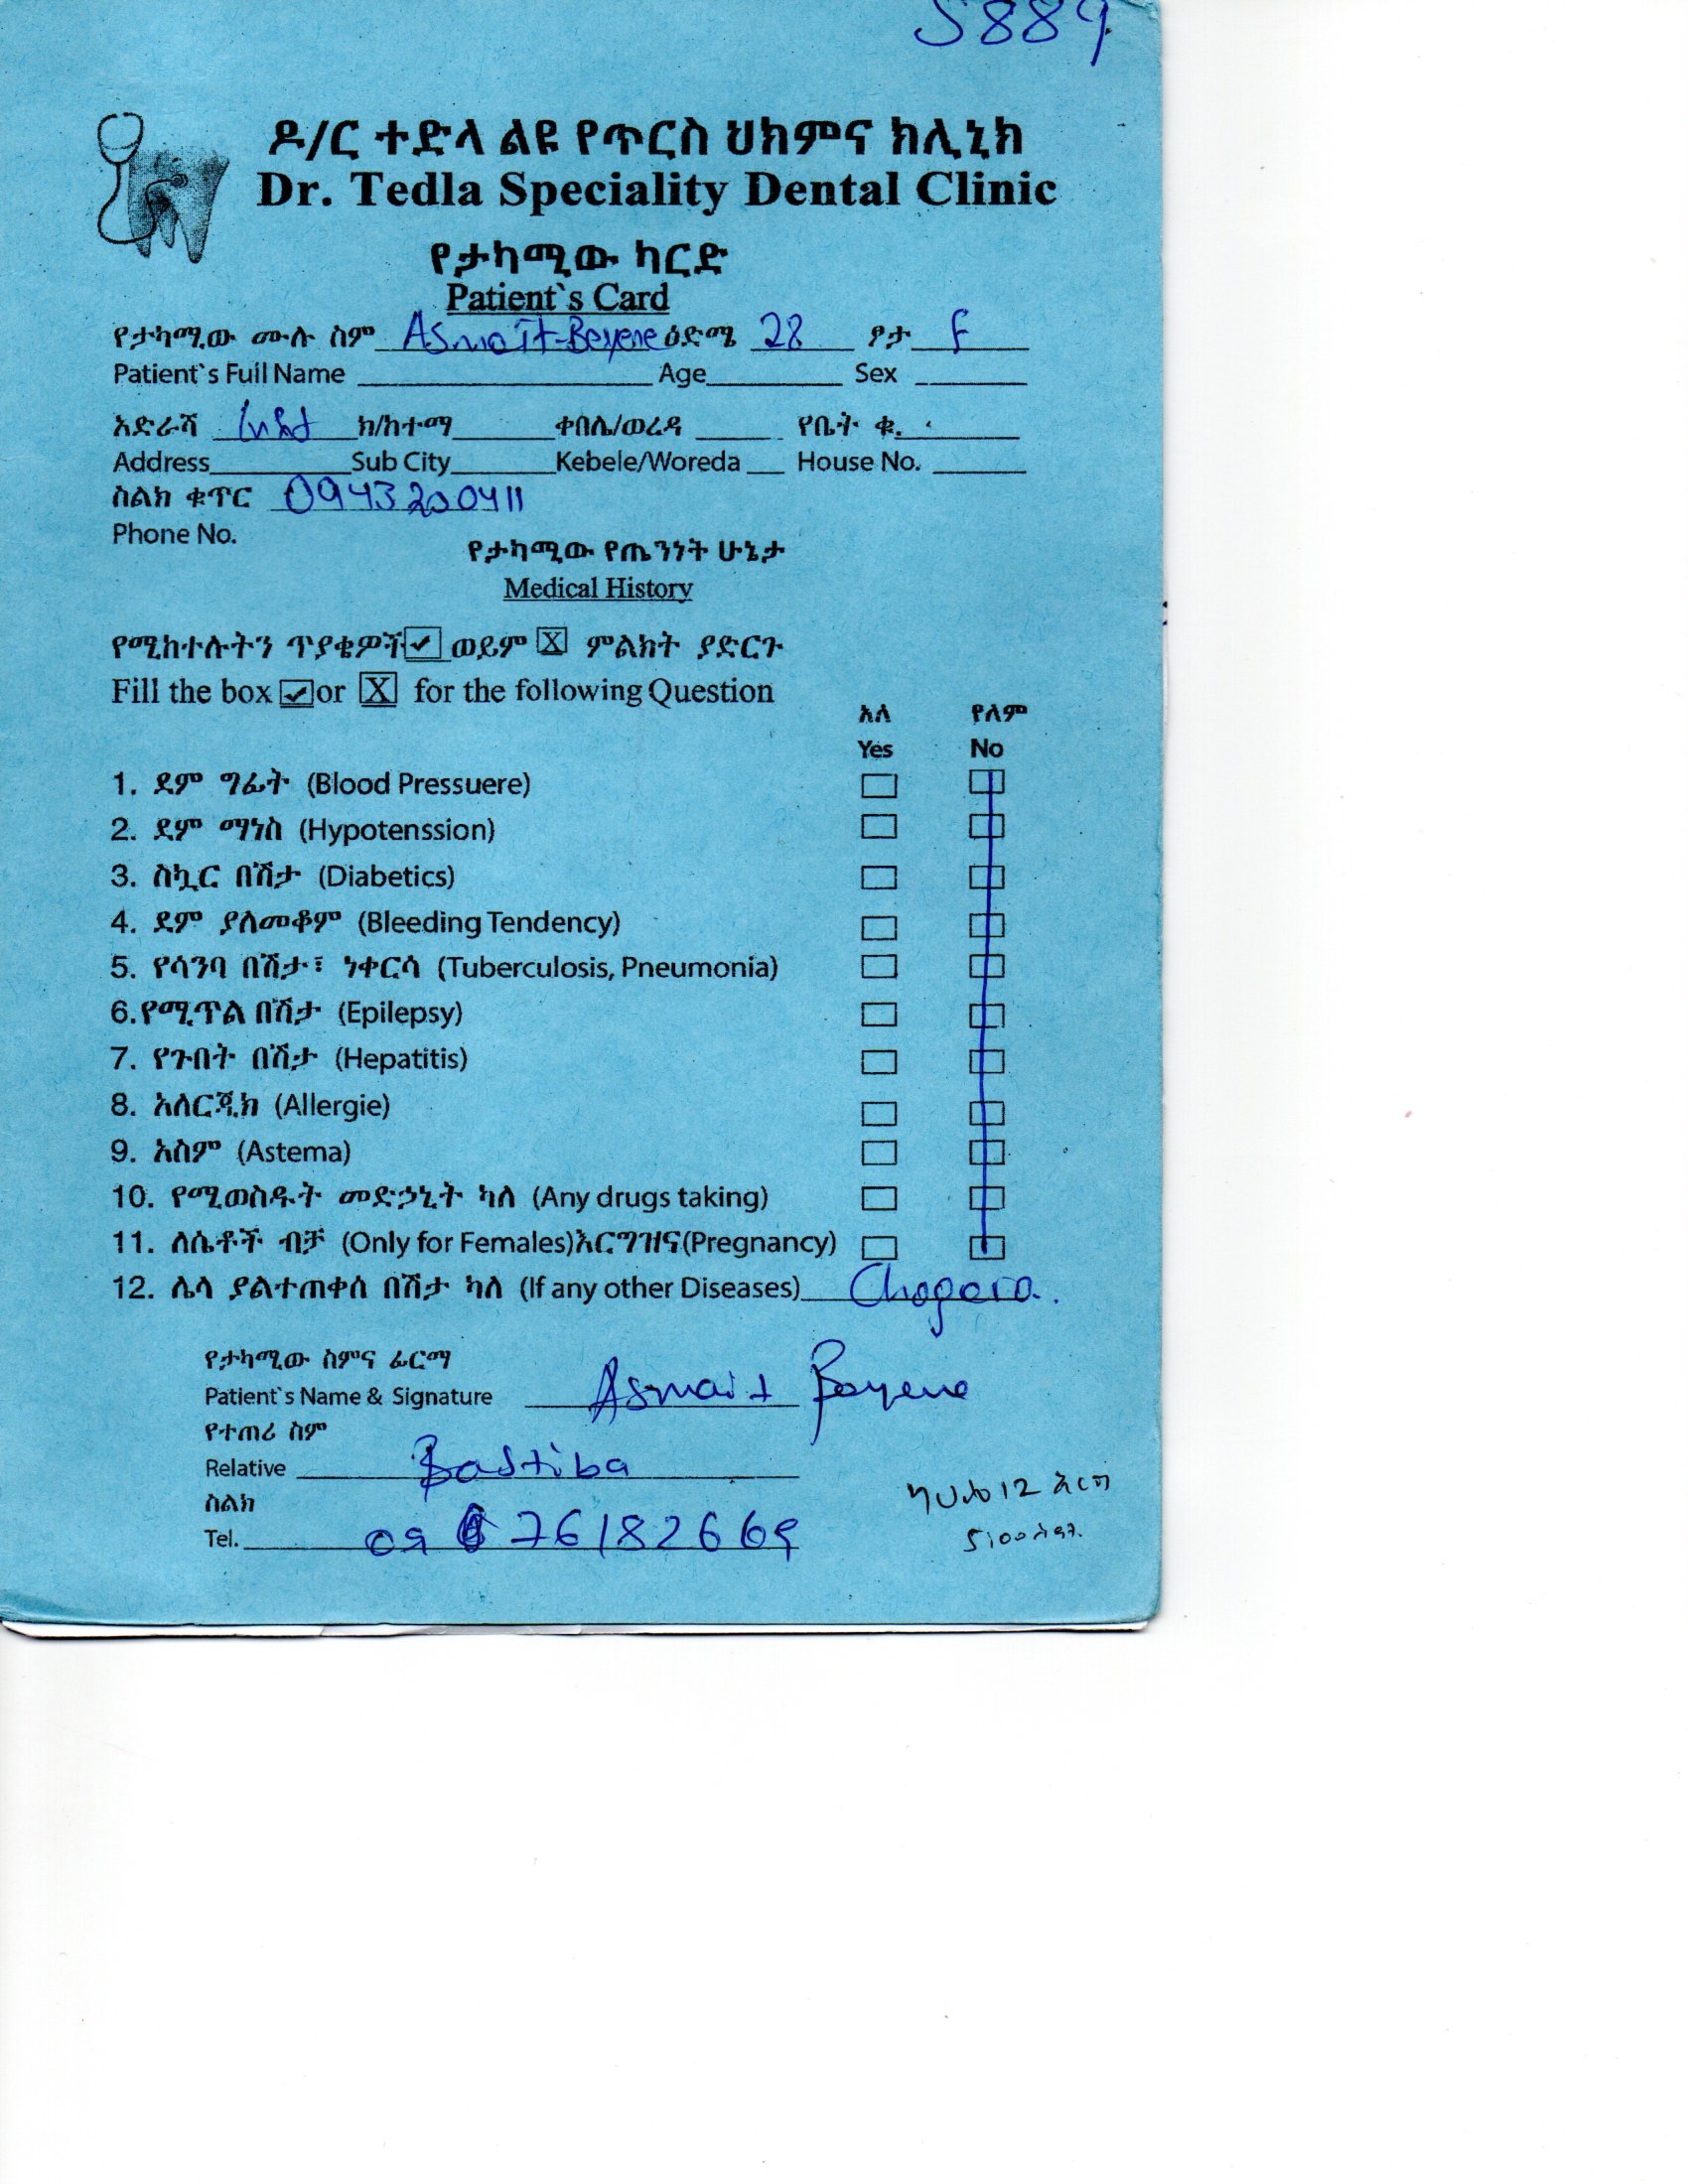 5889
ዶ/ር ተድላ ልዩ የጥርስ ህክምና ክሊኒክ
Dr. Tedla Speciality Dental Clinic
የታካሚው ካርድ
Patient`s Card
የታካሚው ሙሉ ስም Asmait Beyene ዕድሜ 28 ፆታ F
Patient`s Full Name Age Sex
አድራሻ ክ/ከተማ ቀበሌ/ወረዳ የቤት ቁ.
Address Sub City Kebele/Woreda House No.
ስልክ ቁጥር 0943200411
Phone No.
የታካሚው የጤንነት ሁኔታ
Medical History
የሚከተሉትን ጥያቄዎች ✓ ወይም X ምልክት ያድርጉ
Fill the box ✓ or X for the following Question
አለ የለም
Yes No
1. ደም ግፊት (Blood Pressuere)
2. ደም ማነስ (Hypotenssion)
3. ስኳር በሽታ (Diabetics)
4. ደም ያለመቆም (Bleeding Tendency)
5. የሳንባ በሽታ፣ ነቀርሳ (Tuberculosis, Pneumonia)
6.የሚጥል በሽታ (Epilepsy)
7. የጉበት በሽታ (Hepatitis)
8. አለርጂክ (Allergie)
9. አስም (Astema)
10. የሚወስዱት መድኃኒት ካለ (Any drugs taking)
11. ለሴቶች ብቻ (Only for Females)እርግዝና(Pregnancy)
12. ሌላ ያልተጠቀሰ በሽታ ካለ (If any other Diseases) Chogara.
የታካሚው ስምና ፊርማ
Patient`s Name & Signature Asmait Beyene
የተጠሪ ስም
Relative
ስልክ
Tel. 76182669